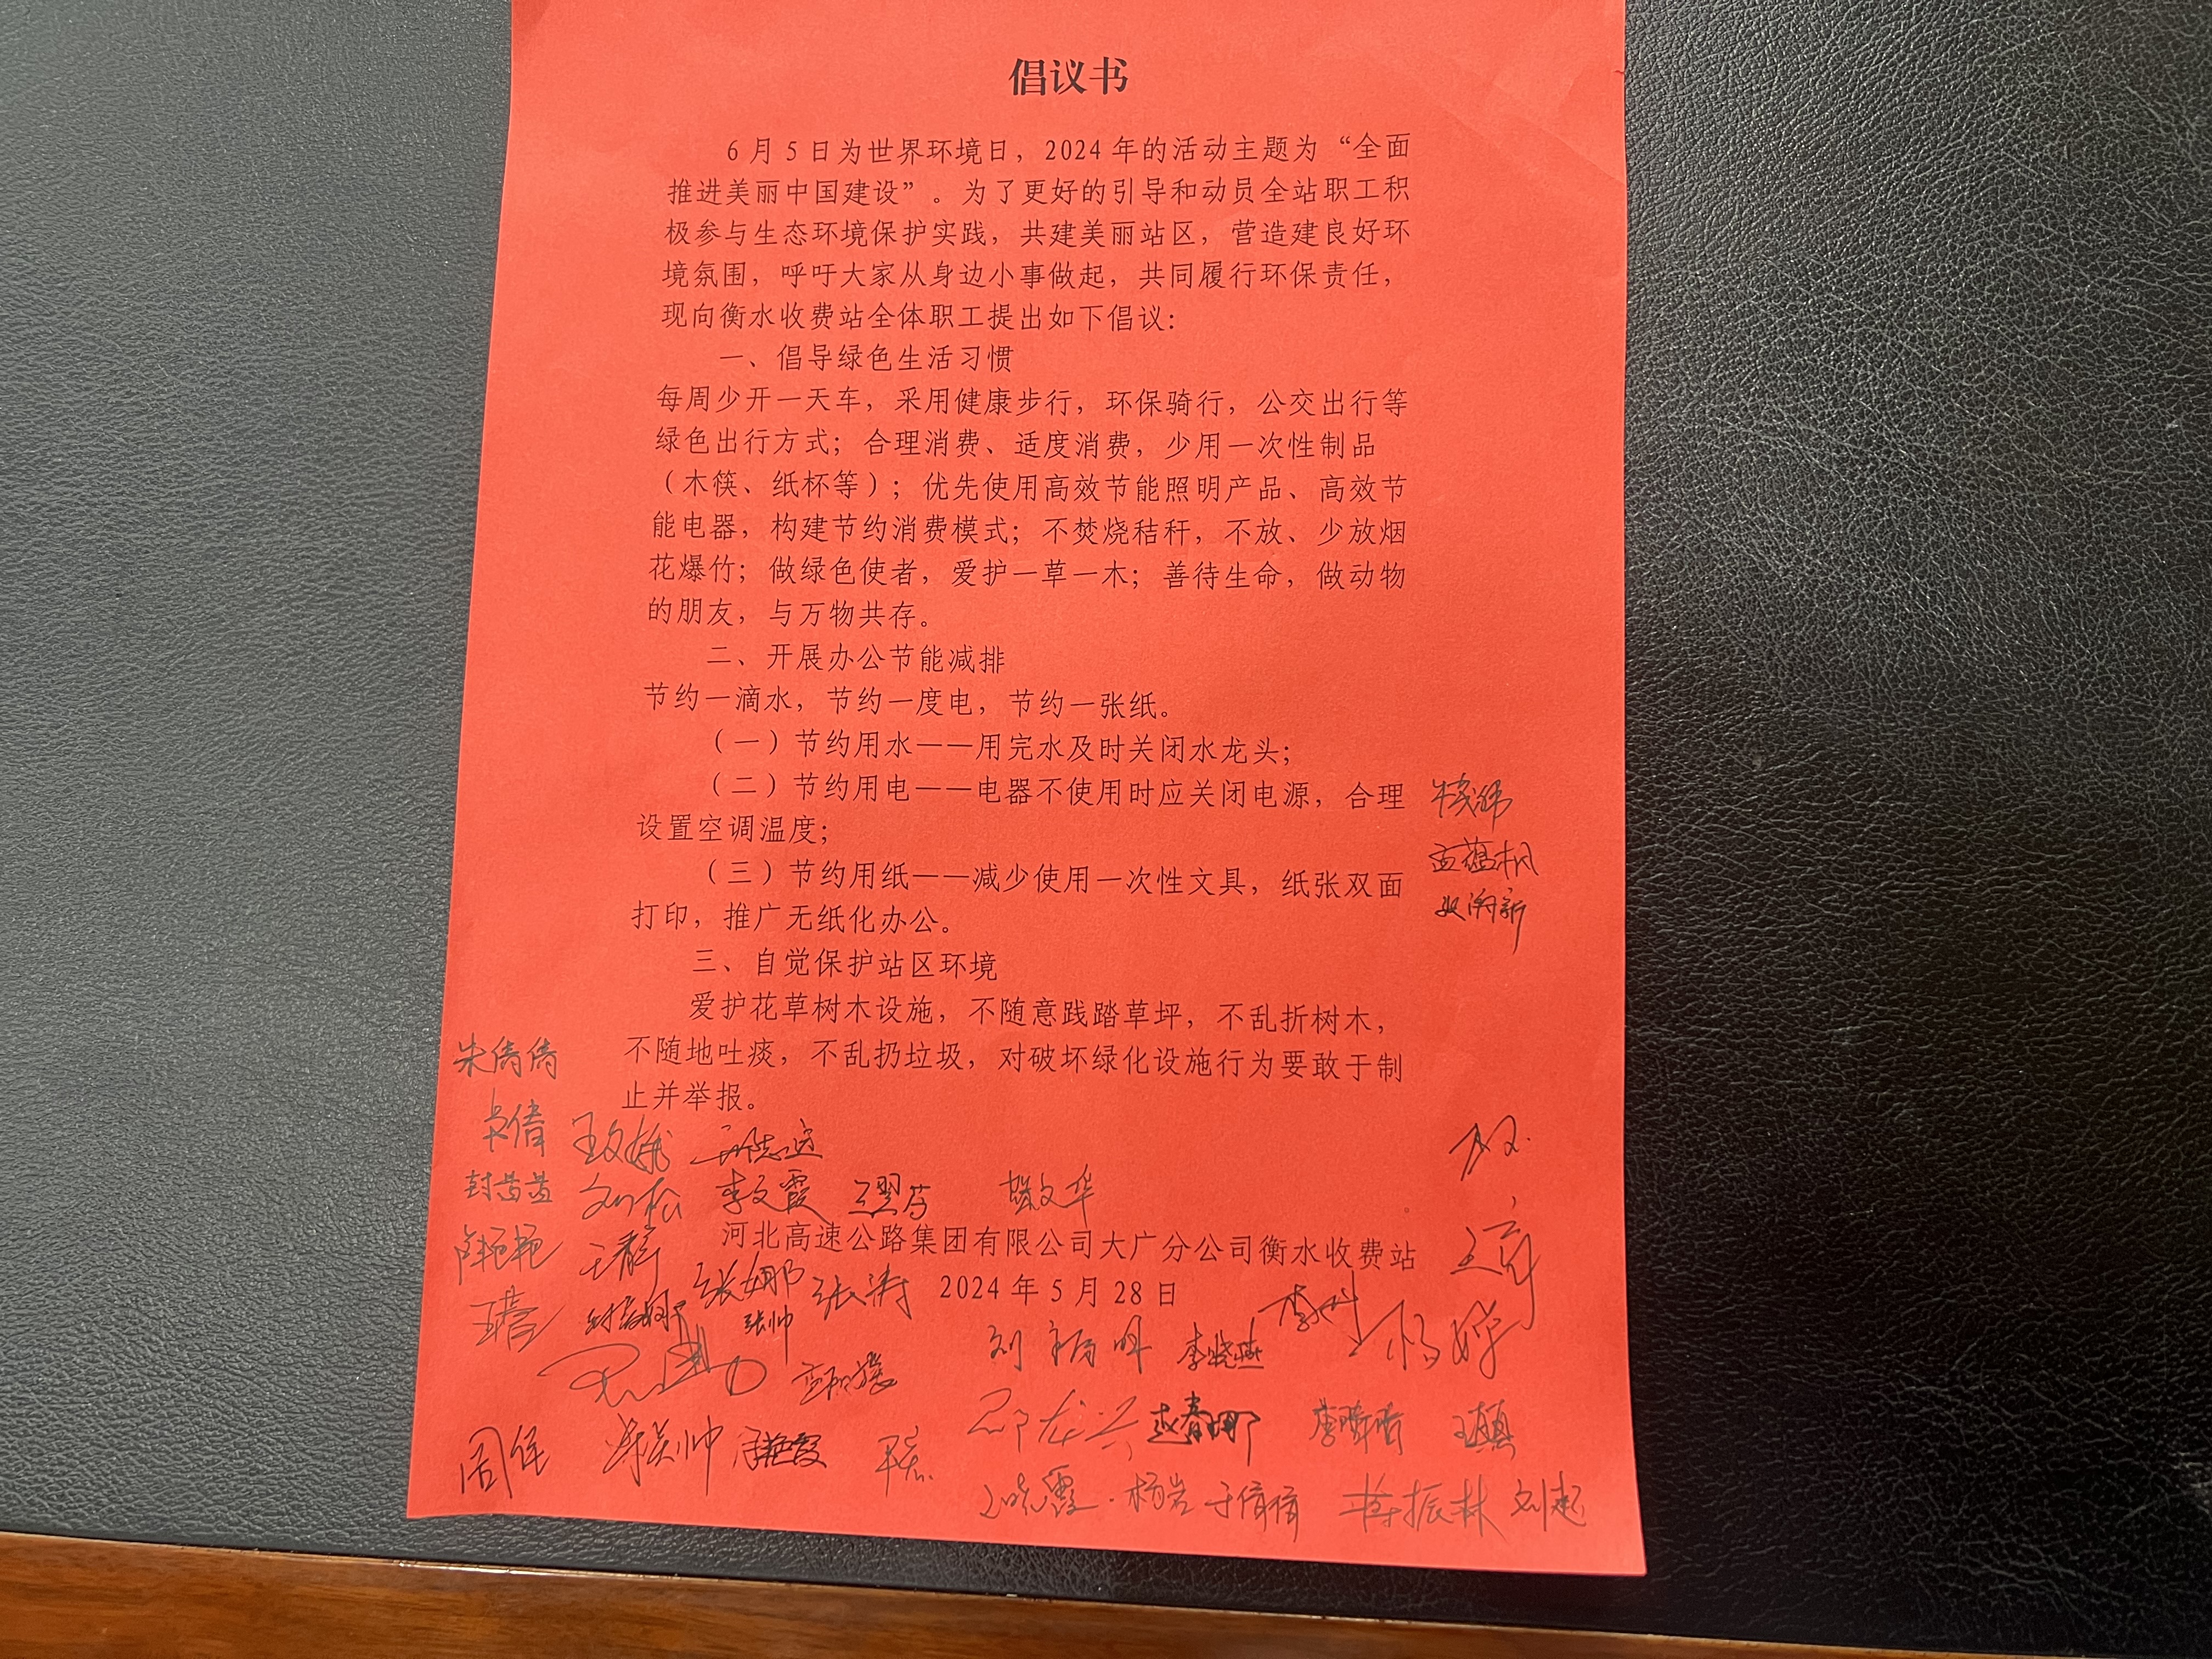 倡议书
6月5日为世界环境日，2024年的活动主题为“全面
推进美丽中国建设”。为了更好的引导和动员全站职工积
极参与生态环境保护实践，共建美丽站区，营造建良好环
境氛围，呼吁大家从身边小事做起，共同履行环保责任，
现向衡水收费站全体职工提出如下倡议：
一、倡导绿色生活习惯
每周少开一天车，采用健康步行，环保骑行，公交出行等
绿色出行方式；合理消费、适度消费，少用一次性制品
（木筷、纸杯等）；优先使用高效节能照明产品、高效节
能电器，构建节约消费模式；不焚烧秸秆，不放、少放烟
花爆竹；做绿色使者，爱护一草一木；善待生命，做动物
的朋友，与万物共存。
二、开展办公节能减排
节约一滴水，节约一度电，节约一张纸。
（一）节约用水——用完水及时关闭水龙头；
（二）节约用电——电器不使用时应关闭电源，合理
设置空调温度；
（三）节约用纸——减少使用一次性文具，纸张双面
打印，推广无纸化办公。
三、自觉保护站区环境
爱护花草树木设施，不随意践踏草坪，不乱折树木，
不随地吐痰，不乱扔垃圾，对破坏绿化设施行为要敢于制
止并举报。
朱倩倩
刘松 李文霞
河北高速公路集团有限公司大广分公司衡水收费站
张娜 张涛 2024年5月28日
张帅
李晓燕
邵龙兴 赵春娜 王真
杨岩 于倩倩 刘起